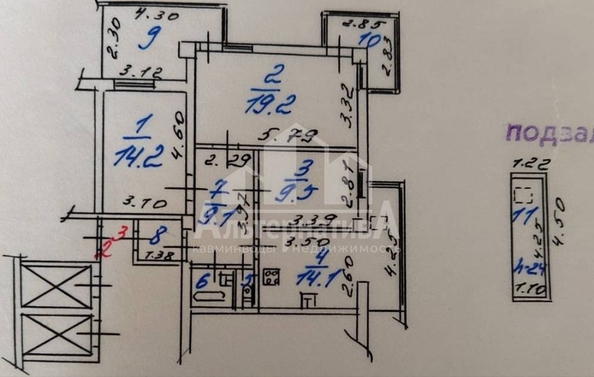 4.30
2.30
9
3.12
2.85
10
2.83
2
19.2
3.32
5.79
1
14.2
4.60
3.10
2.29
3
9.5
2.81
7
9.1
3.97
3.39
3.50
4
14.1
2.60
4.25
23
8
1.38
6
5
АльтернативА
кавминводы недвижимость
подзал
1.22
11
4.25
4.50
h-24
1.10